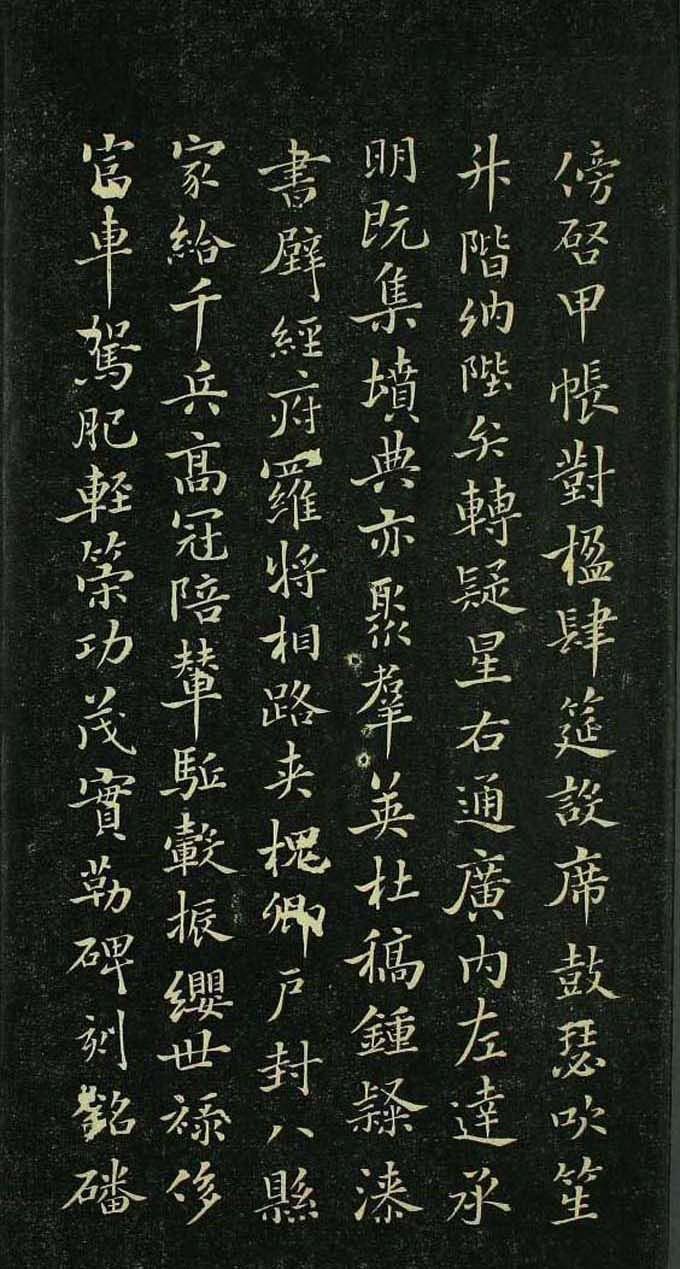 傍啓甲帳對楹肆筵設席鼓瑟吹笙
升階納陛弁轉疑星右通廣内左達承
明既集墳典亦聚羣英杜稿鍾隸漆
書壁經府羅將相路夾槐卿戶封八縣
家給千兵高冠陪輦駈轂振纓世祿侈
富車駕肥輕策功茂實勒碑刻銘磻